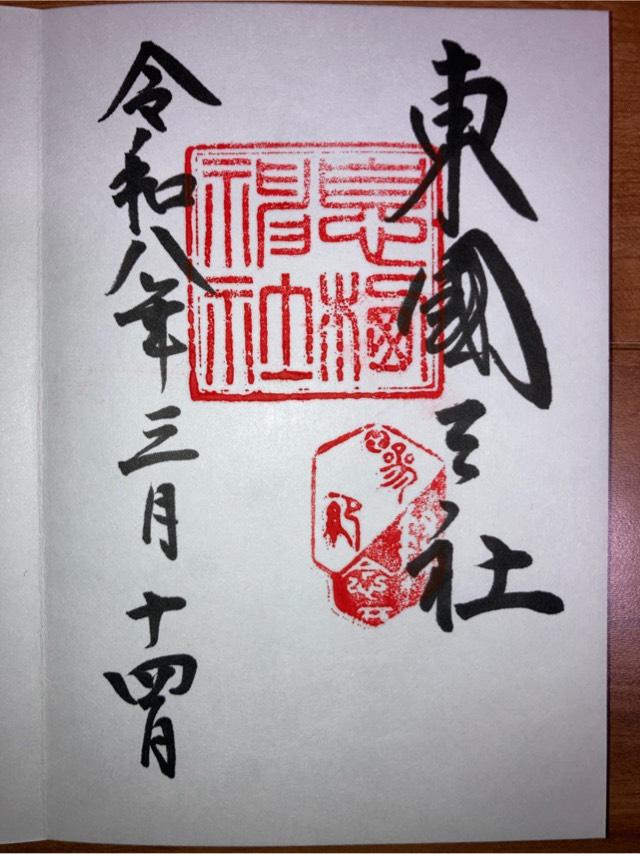 東國三社
息栖
神社
令和八年三月十四日